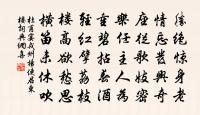 勝絕驚身老
情忘發興奇
座從歌妓密
樂任主人為
重碧拈春酒
輕紅擘荔枝
樓高欲愁思
橫笛未休吹
杜甫宴戎州楊使君東
樓詞典網集